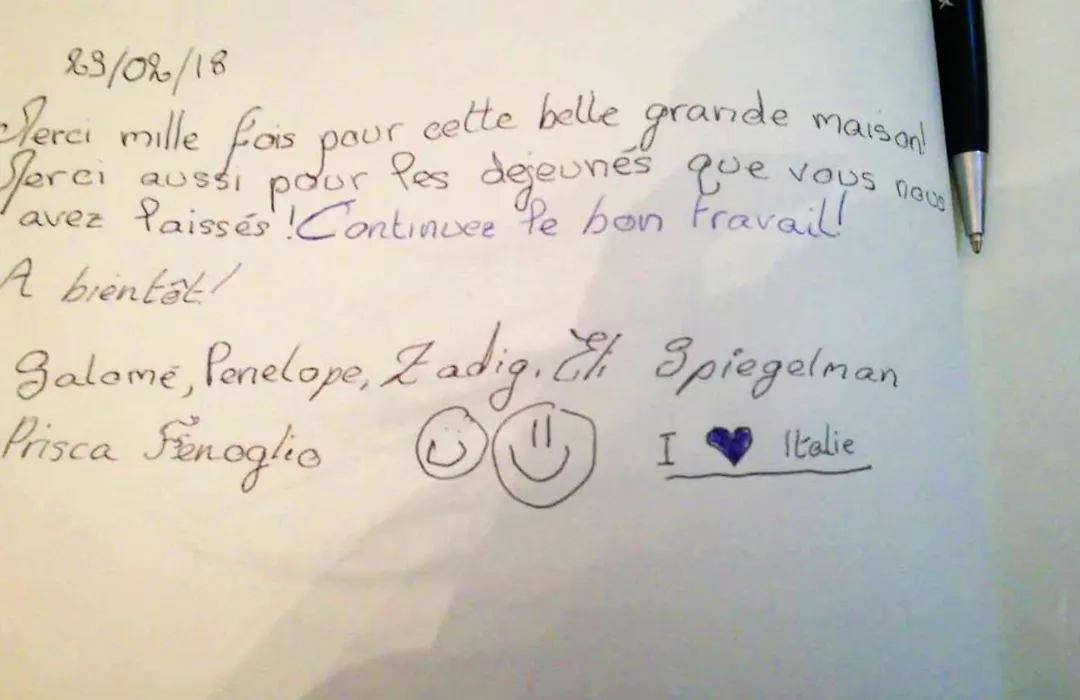 23/02/18
Merci mille fois pour cette belle grande maison!
Merci aussi pour les dejeunés que vous nous
avez laissés! Continuez le bon travail!
A bientôt!
Salomé, Penelope, Zadig, Eli Spiegelman
Prisca Fenoglio
I ♥ Italie